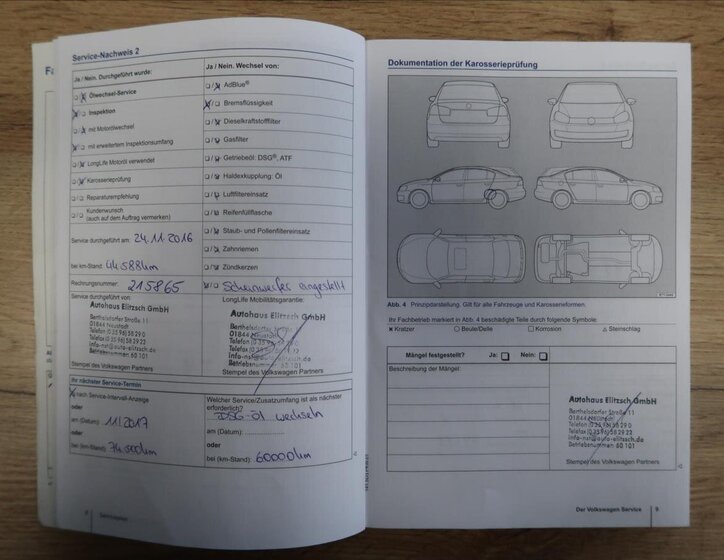 Service-Nachweis 2
Ja / Nein. Durchgeführt wurde:
Ölwechsel-Service
Inspektion
mit Motorölwechsel
mit erweitertem Inspektionsumfang
LongLife Motoröl verwendet
Karosserieprüfung
Reparaturempfehlung
Kundenwunsch
(auch auf dem Auftrag vermerken)
Service durchgeführt am: 24.11.2016
bei km-Stand: 44588km
Rechnungsnummer: 215865
Service durchgeführt von:
Autohaus Elitzsch GmbH
Berthelsdorfer Straße 11
01844 Neustadt
Telefon (0 35 96) 58 29 0
Telefax (0 35 96) 58 29 22
info-nst@auto-elitzsch.de
Betriebsnummer: 60 101
Stempel des Volkswagen Partners
Ja / Nein. Wechsel von:
AdBlue®
Bremsflüssigkeit
Dieselkraftstofffilter
Gasfilter
Getriebeöl: DSG®, ATF
Haldexkupplung: Öl
Luftfiltereinsatz
Reifenfüllflasche
Staub- und Pollenfiltereinsatz
Zahnriemen
Zündkerzen
Scheinwerfer eingestellt
LongLife Mobilitätsgarantie:
Autohaus Elitzsch GmbH
Berthelsdorfer Straße 11
01844
Telefon (0 35 96)
Telefax (0 35 96)
info-nst@auto-elitzsch.de
Betriebsnummer: 60 101
Stempel des Volkswagen Partners
Ihr nächster Service-Termin
nach Service-Intervall-Anzeige
oder
am (Datum): 11/2017
oder
bei (km-Stand): 74.500km
Welcher Service/Zusatzumfang ist als nächster
erforderlich?
DSG-Öl wechseln
am (Datum):
oder
bei (km-Stand): 60000km
8 Serviceplan
Dokumentation der Karosserieprüfung
Abb. 4 Prinzipdarstellung. Gilt für alle Fahrzeuge und Karosserieformen.
Ihr Fachbetrieb markiert in Abb. 4 beschädigte Teile durch folgende Symbole:
× Kratzer ○ Beule/Delle □ Korrosion △ Steinschlag
Mängel festgestellt? Ja: □ Nein: □
Beschreibung der Mängel:
Autohaus Elitzsch GmbH
Berthelsdorfer Straße 11
01844 Neustadt
Telefon (0 35 96) 58 29 0
Telefax (0 35 96) 58 29 22
info-nst@auto-elitzsch.de
Betriebsnummer: 60 101
Stempel des Volkswagen Partners
Der Volkswagen Service 9